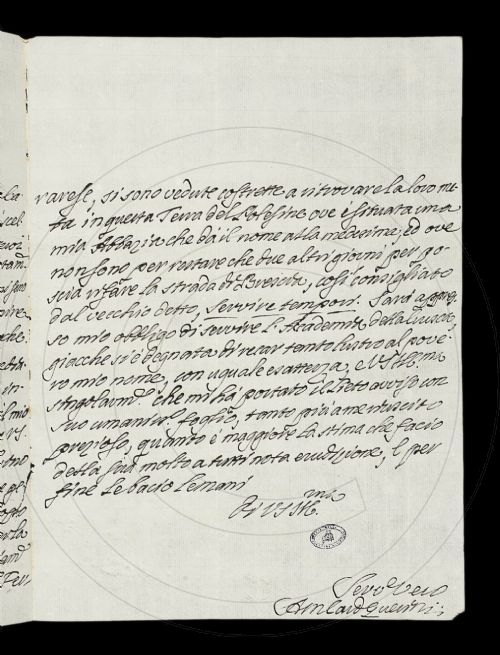 rarese, si sono vedute costrette a ritrovare la loro me-
ta in questa Terra del Polesine ove è situata una
mia Abbazia che dà il nome alla medesime, ed ove
non sono per restare che due altri giorni per po-
scia rifare la strada di Brescia, così consigliato
dal vecchio detto, servire tempori. Sarà appres-
so mio obbligo di servire l'Academia della Crusca,
giacchè si è degnata di recar tanto lustro al pove-
ro mio nome, con uguale esattezza, e VS Ill. mi
singolarm. che mi hà portato il lieto avviso con
suo umaniss. foglio, tanto più a me riuscito
prezioso, quanto è maggiore la stima che faccio
della sua molto a tutti nota erudizione, e per
fine le bacio le mani
Di VS Ill.ma
Serv. Vero
A M Card Querini